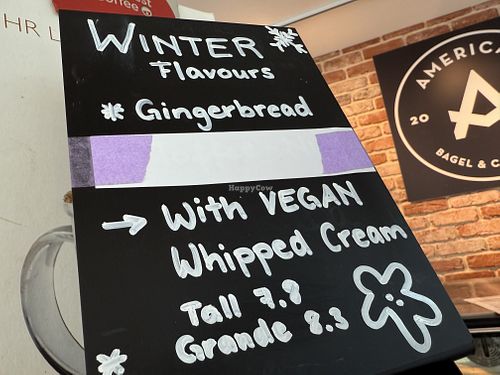 coffee
HR L
WINTER
Flavours
Gingerbread
With VEGAN
Whipped Cream
Tall 7.8
Grande 8.3
AMERICA
20
A
BAGEL & C
HappyCow